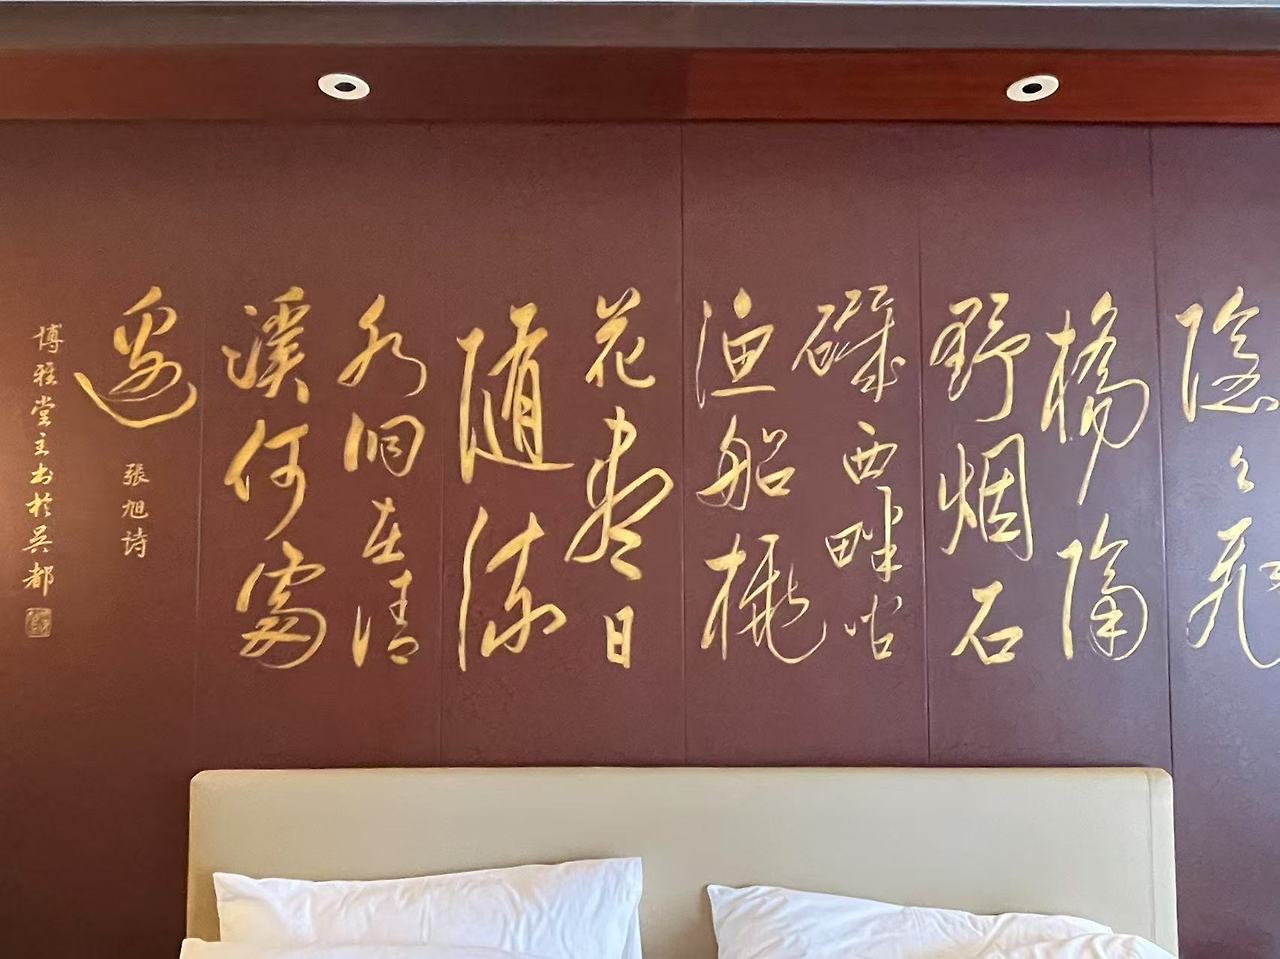 隐々飛
橋隔
野烟石
磯西畔问
渔船桃
花盡日
随流
水洞在清
溪何處
邊
張旭诗
博雅堂主书於吴都